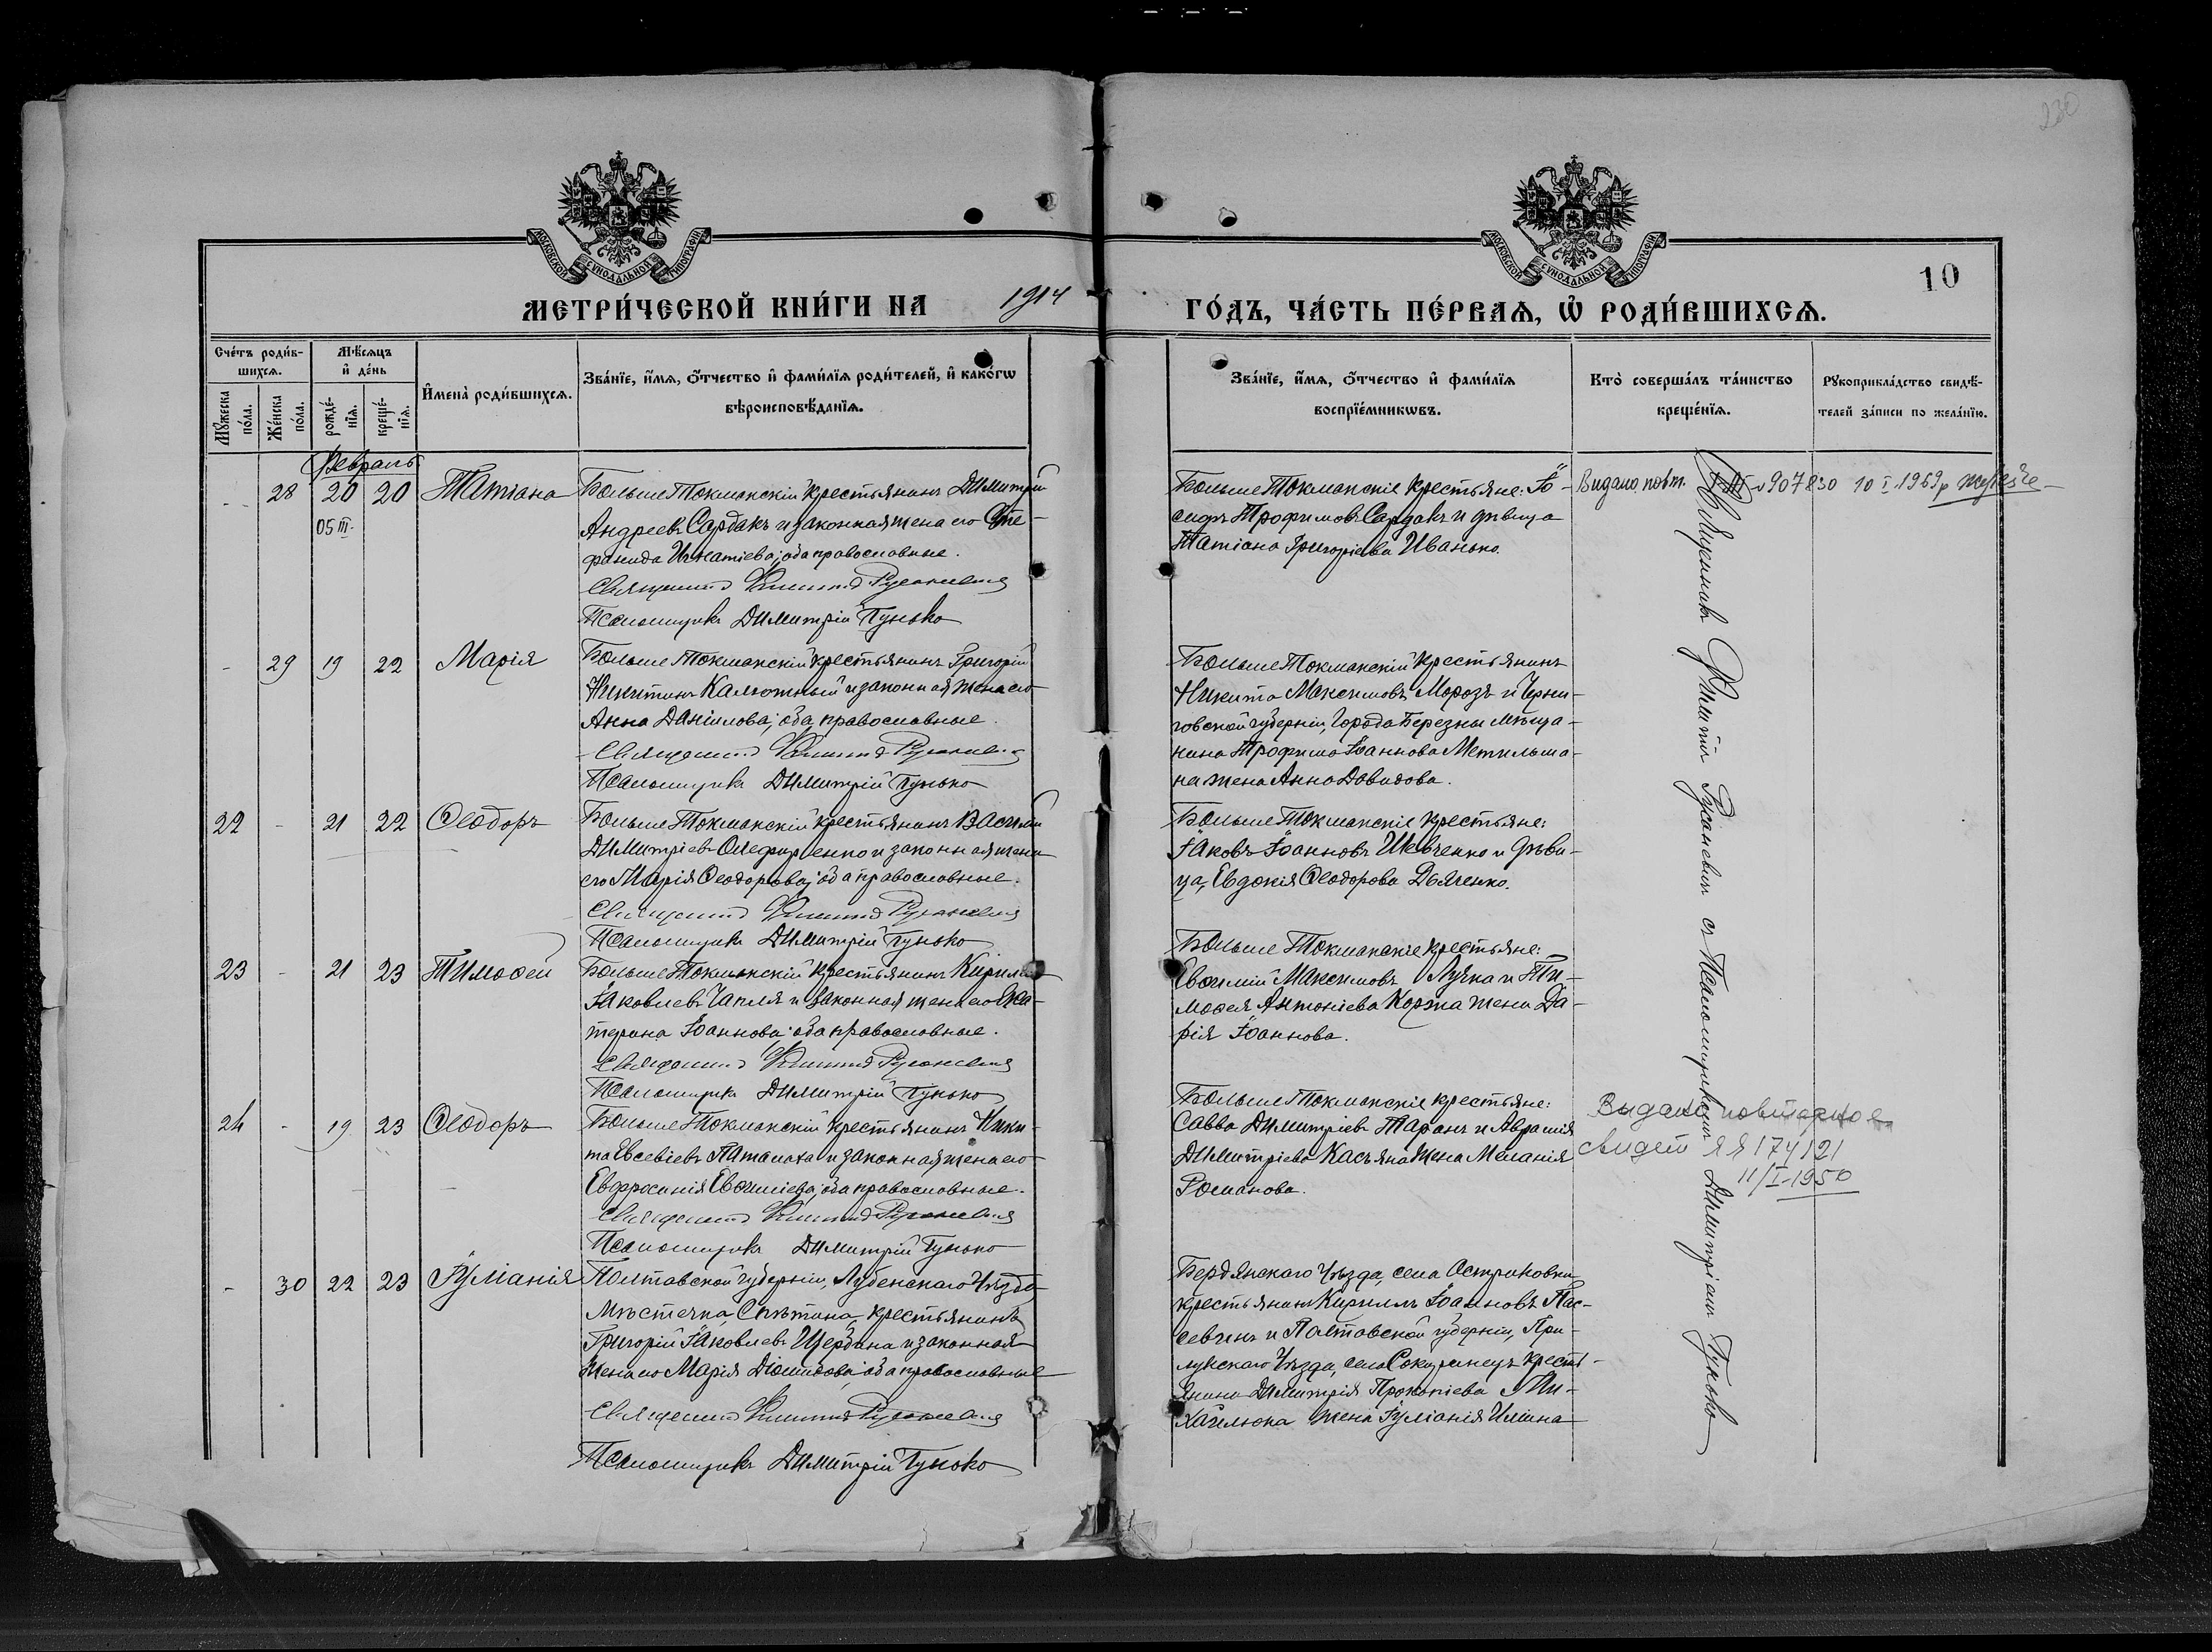 230
МОСКОВСКОЙ СѴНОДАЛЬНОЙ ТИПОГРАФІИ
МОСКОВСКОЙ СѴНОДАЛЬНОЙ ТИПОГРАФІИ
10
МЕТРИ́ЧЕСКОЙ КНИ́ГИ НА 1914 ГО́ДЪ, ЧА́СТЬ ПЕ́РВАѦ, Ѡ҆ РОДИ́ВШИХСѦ.
Сче́тъ роди́в-
шихсѧ.
Мѣ́сѧцъ
и҆ де́нь
Мꙋ́жеска
по́ла.
Же́нска
по́ла.
рожде́-
нїѧ.
креще́-
нїѧ.
И҆мена̀ роди́вшихсѧ.
Зва́нїе, и҆́мѧ, ѻ҆́тчество и҆ фами́лїѧ роди́телей, и҆ како́гѡ
вѣроисповѣ́данїѧ.
Зва́нїе, и҆́мѧ, ѻ҆́тчество и҆ фами́лїѧ
воспрїе́мникѡвъ.
Кто̀ соверша́лъ та́инство
креще́нїѧ.
Рꙋкоприкла́дство свидѣ́-
телей за́писи по жела́нїю.
Февраль
- 28 20 20 Татіана
05 III.
БольшеТокмакскій крестьянинъ Димитрій
Андреевъ Сардакъ и законная жена его Сте-
фанида Игнатіева; оба православные.
Священникъ Филиппъ Русаневичъ
Псаломщикъ Димитрій Гунько
БольшеТокмакскіе крестьяне: Іо-
сифъ Трофимовъ Сардакъ и дѣвица
Татіана Григоріева Иванько.
Видано повт. 907830 10 I 1969р
- 29 19 22 Марія
БольшеТокмакскій крестьянинъ Григорій
Никитинъ Калютный и законная жена его
Анна Даніилова; оба православные.
Священникъ Филиппъ Русаневичъ
Псаломщикъ Димитрій Гунько
БольшеТокмакскій крестьянинъ
Никита Максимовъ Морозъ и Черни-
говской губерніи, города Березны мѣща-
нина Трофима Іоаннова Метильма-
на жена Анна Давидова.
22 - 21 22 Ѳеодоръ
БольшеТокмакскій крестьянинъ Василій
Димитріевъ Олефиренко и законная жена
его Марія Ѳеодорова; оба православные.
Священникъ Филиппъ Русаневичъ
Псаломщикъ Димитрій Гунько
БольшеТокмакскіе крестьяне:
Іаковъ Іоанновъ Шевченко и дѣви-
ца, Евдокія Ѳеодорова Дьяченко.
23 - 21 23 Тимоѳей
БольшеТокмакскій крестьянинъ Кириллъ
Іаковлевъ Чапля и законная жена его Ека-
терина Іоаннова; оба православные.
Священникъ Филиппъ Русаневичъ
Псаломщикъ Димитрій Гунько
Больше Токмакскіе крестьяне:
Евѳимій Максимовъ Лучка и Ти-
моѳея Антоніева Коржа жена Да-
рія Іоаннова.
24 - 19 23 Ѳеодоръ
БольшеТокмакскій крестьянинъ Ники-
та Евсевіевъ Паталаха и законная жена его
Евфросинія Евѳиміева; оба православные.
Священникъ Филиппъ Русаневичъ
Псаломщикъ Димитрій Гунько
БольшеТокмакскіе крестьяне:
Савва Димитріевъ Таранъ и Аврамія
Димитріева Касьяна жена Меланія
Романова.
Видано повторное
свидет ЯЯ 174121
11/I-1950
- 30 22 23 Іуліанія
Полтавской губерніи, Лубенскаго уѣзда
мѣстечка, Снѣтина, крестьянинъ
Григорій Іаковлевъ Щербина и законная
жена его Марія Діомидова; оба православные
Священникъ Филиппъ Русаневичъ
Псаломщикъ Димитрій Гунько
Бердянскаго уѣзда, села Остриковки
крестьянинъ Кириллъ Іоанновъ Пас-
севчинъ и Полтавской губерніи, При-
лукскаго уѣзда, села Сокиринецъ кресть-
янина Димитрія Прокопіева Ми-
хайлюка жена Іуліанія Ильина
Священникъ Филиппъ Русаневичъ съ Псаломщикомъ Димитріемъ Гунько